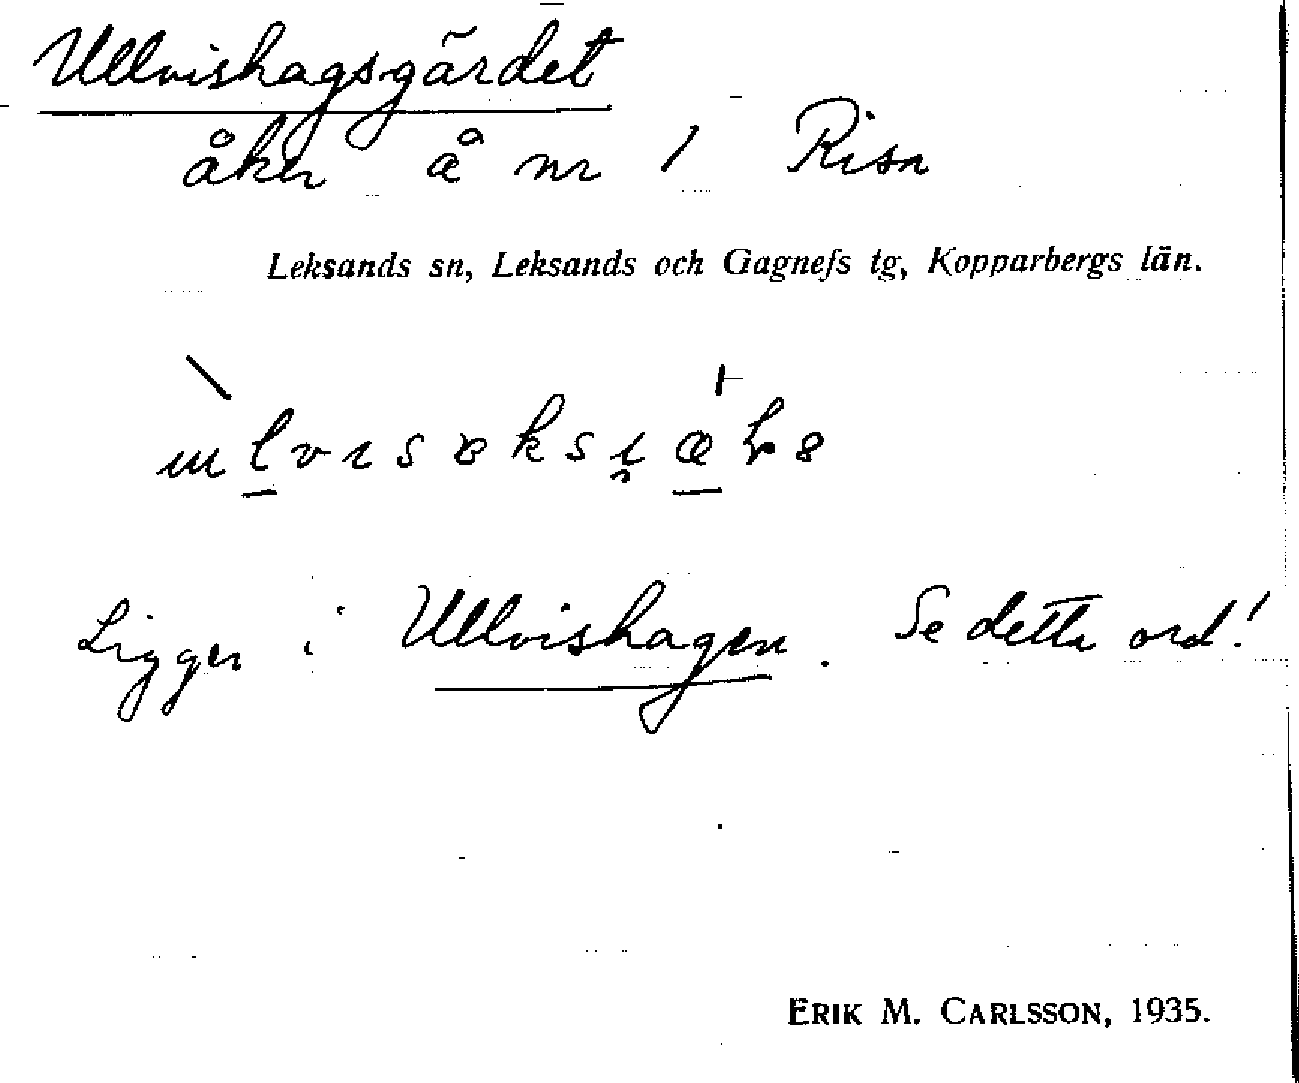 Ullvishagsgärdet
åker å nr 1 Risa
Leksands sn, Leksands och Gagnefs tg, Kopparbergs län.
Ligger i Ullvishagen. Se detta ord!
ERIK M. CARLSSON, 1935.